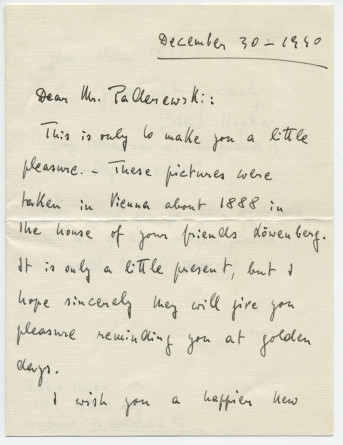 December 30 - 1940
Dear Mr. Paderewski:
This is only to make you a little
pleasure. - These pictures were
taken in Vienna about 1888 in
the house of your friends Löwenberg.
It is only a little present, but I
hope sincerely they will give you
pleasure reminding you at golden
days.
I wish you a happier new